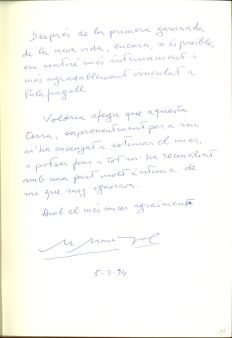 Després de la primera garoinada
de la meva vida, encara, si és possible,
em sentiré més íntimament i
més agradablement vinculat a
Palafrugell
Voldria afegir que aquesta
terra, sorprenentment per a mi,
m'ha ensenyat a estimar el mar,
i potser fins i tot m'ha reconciliat
amb una part molt íntima de
mi que vaig ignorar.
Amb el més sincer agraïment
5-2-94